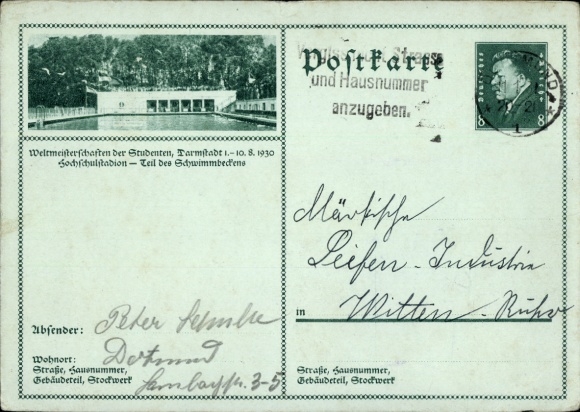 Postkarte
Vergiss nicht Strasse
und Hausnummer
anzugeben.
Deutsches Reich
8 8
Weltmeisterschaften der Studenten, Darmstadt 1.–10. 8. 1930
Hochschulstadion — Teil des Schwimmbeckens
Märkische
Seifen-Industrie
in Witten-Ruhr
Straße, Hausnummer,
Gebäudeteil, Stockwerk
Absender: Peter
Wohnort: Dortmund
Straße, Hausnummer,
Gebäudeteil, Stockwerk 3-5